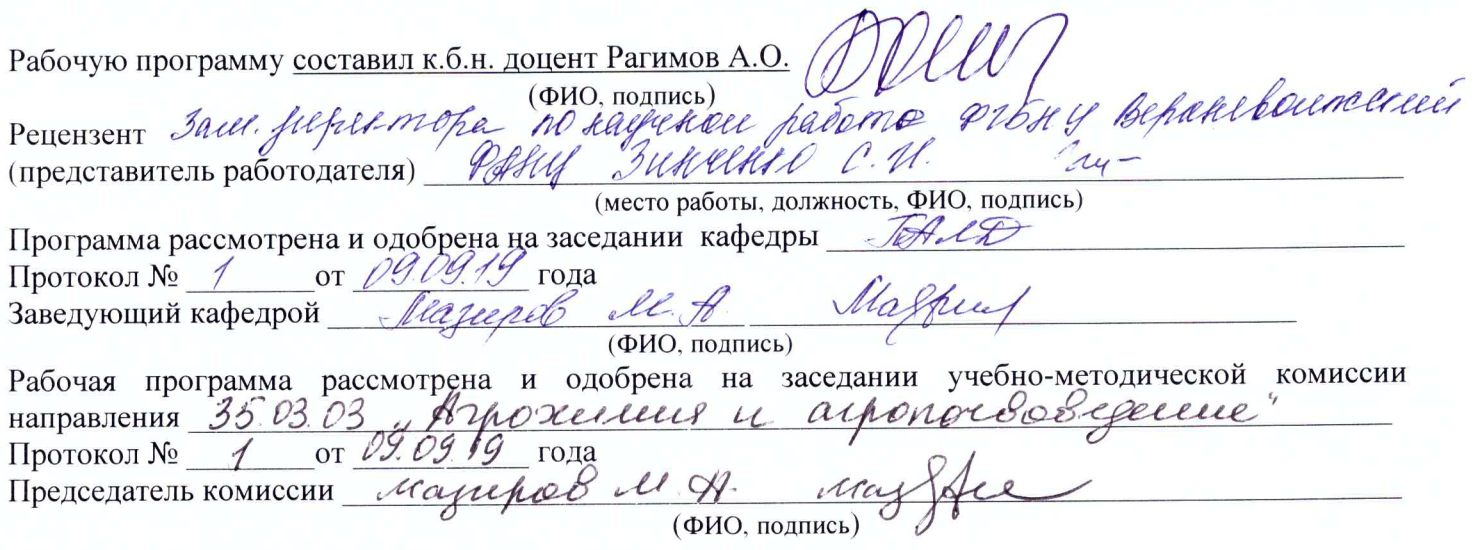 Рабочую программу составил к.б.н. доцент Рагимов А.О.
(ФИО, подпись)
Рецензент Зам. директора по научной работе ФГБНУ Верхневолжский
(представитель работодателя) ФАНЦ Зинченко С.И.
(место работы, должность, ФИО, подпись)
Программа рассмотрена и одобрена на заседании кафедры
Протокол № 1 от 09.09.19 года
Заведующий кафедрой Мазиров М.А.
(ФИО, подпись)
Рабочая программа рассмотрена и одобрена на заседании учебно-методической комиссии
направления 35.03.03 „Агрохимия и агропочвоведение"
Протокол № 1 от 09.09.19 года
Председатель комиссии Мазиров М.А.
(ФИО, подпись)